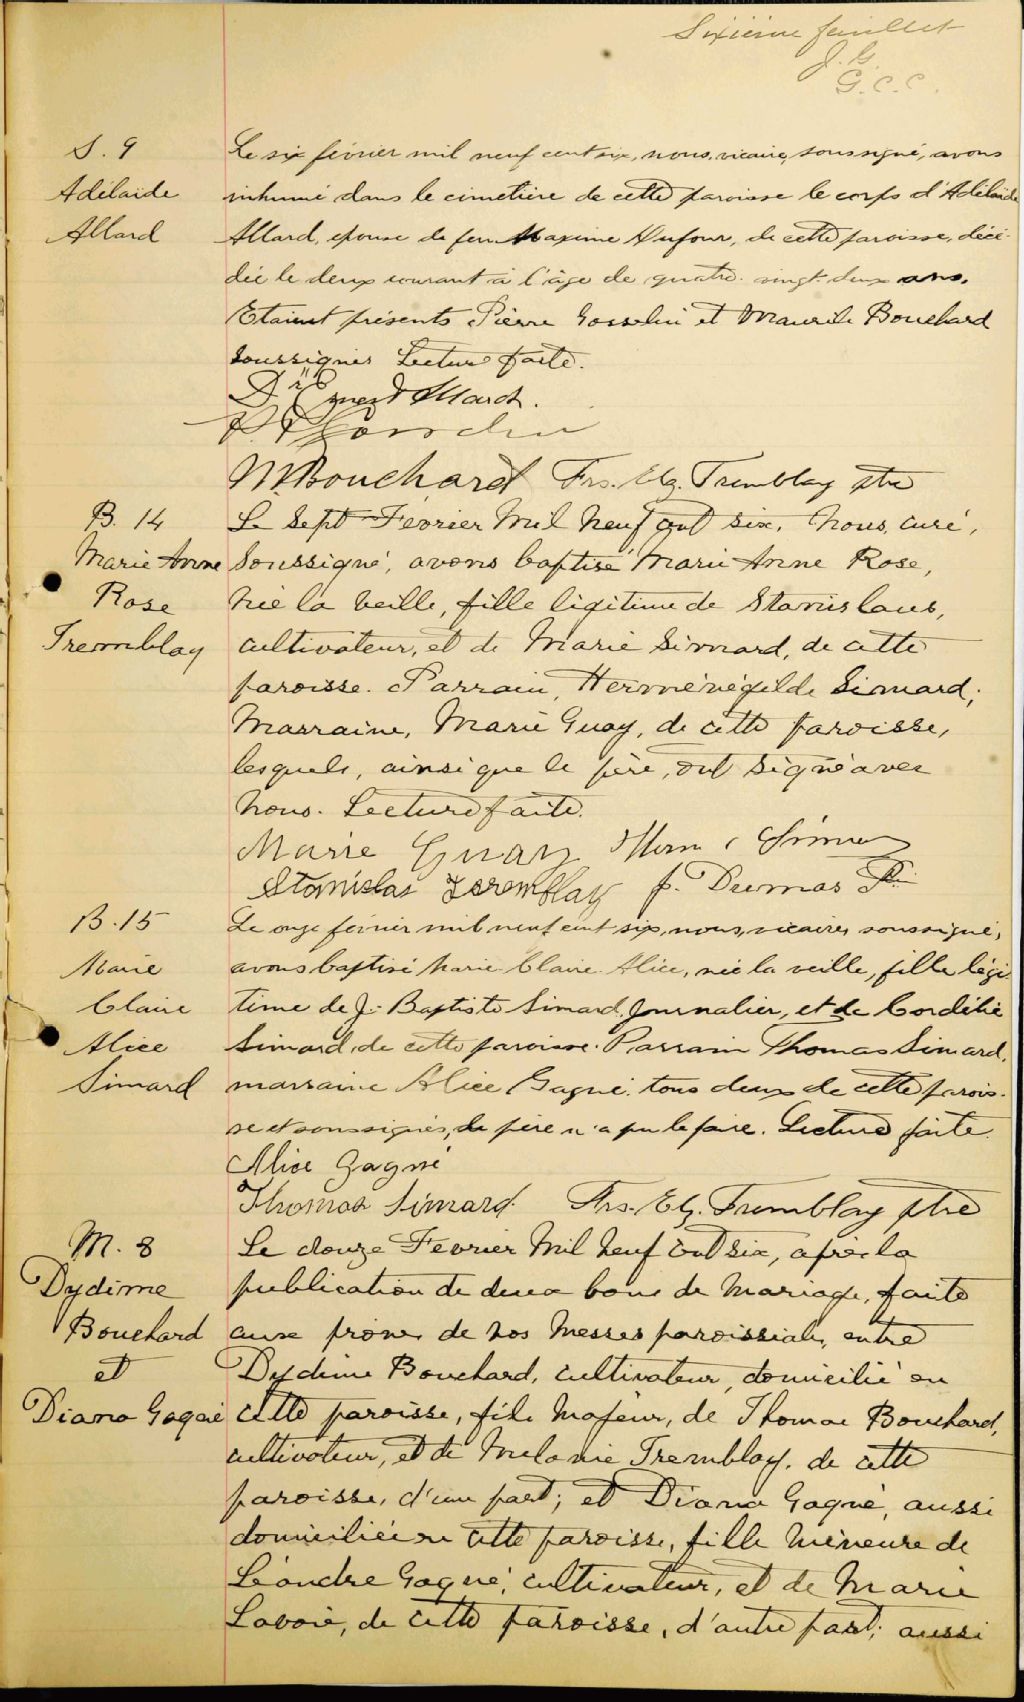 Sixième feuillet
J. G.
G. C. C.
S. 9
Adélaïde
Allard
Le six février mil neuf cent six, nous, vicaire, soussigné, avons
inhumé dans le cimetière de cette paroisse le corps d'Adélaïde
Allard, épouse de feu Maxime Dufour, de cette paroisse, décé-
dée le deux courant à l'âge de quatre-vingt-deux ans.
Etaient présents Pierre Gosselin et Maurile Bouchard
soussignés Lecture faite.
Dr Ernest March.
M. Bouchard Frs. Elz. Tremblay ptre
B. 14
Marie Anne
Rose
Tremblay
Le Sept Février Mil Neuf cent six, Nous, curé,
Soussigné, avons baptisé Marie Anne Rose,
Née la veille, fille légitime de Stanislaus,
cultivateur, et de Marie Simard, de cette
paroisse. Parrain, Herménégilde Simard;
Marraine, Marie Guay, de cette paroisse,
lesquels, ainsi que le père, ont signé avec
Nous. Lecture faite.
Marie Guay Herm Simar
Stanislas Tremblay J. Dumas P.
B. 15
Marie
Claire
Alice
Simard
Le onze février mil neuf cent six, nous, vicaire, soussigné,
avons baptisé Marie Claire Alice, née la veille, fille légi-
time de J-Baptiste Simard, journalier, et de Cordélie
Simard, de cette paroisse. Parrain Thomas Simard,
marraine Alice Gagné, tous deux de cette parois-
se et soussignés, le père n'a pu le faire. Lecture faite.
Alice Gagné
Thomas Simard. Frs. Elz. Tremblay ptre
M. 8
Dydime
Bouchard
et
Diana Gagné
Le douze Février Mil Neuf Cent six, après la
publication de deux bans de Mariage, faite
aux prones de nos Messes paroissiales, entre
Dydime Bouchard, cultivateur, domicilié en
cette paroisse, fils Majeur, de Thomas Bouchard,
cultivateur, et de Mélanie Tremblay, de cette
paroisse, d'une part; et Diana Gagné, aussi
domiciliée en cette paroisse, fille Mineure de
Léandre Gagné, cultivateur, et de Marie
Lavoie, de cette paroisse, d'autre part; aussi